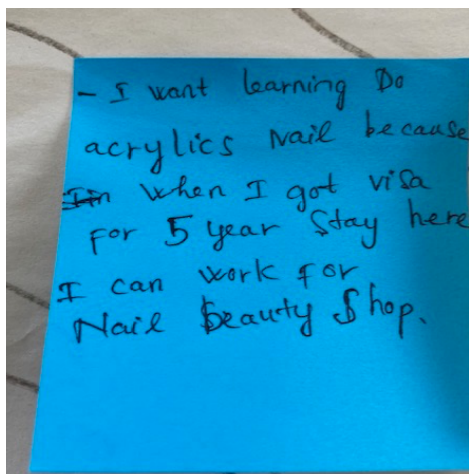 - I want learning Do
acrylics Nail because
when I got visa
for 5 year Stay here
I can work for
Nail Beauty Shop.